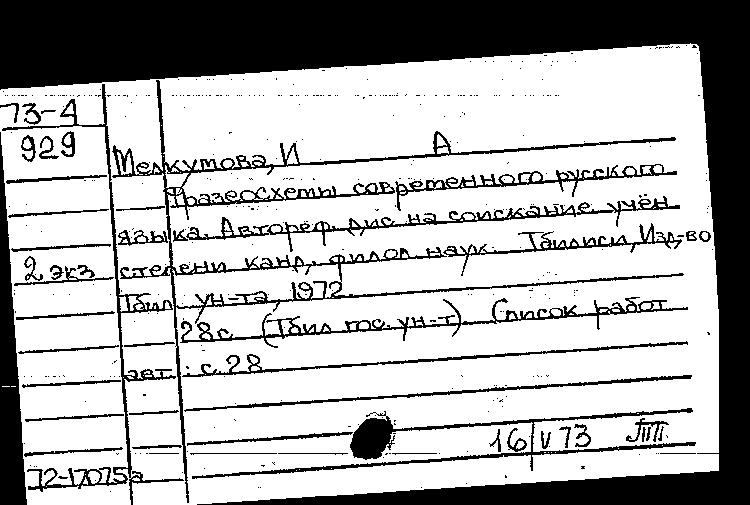 73-4
929
Мелкумова, И А
Фразеосхемы современного русского
языка. Автореф. дис на соискание учён
2 экз степени канд. филол наук. Тбилиси, Изд-во
Тбил ун-та, 1972
28с (Тбил гос. ун-т). Список работ
авт.: с. 28
16/V 73
72-17075а